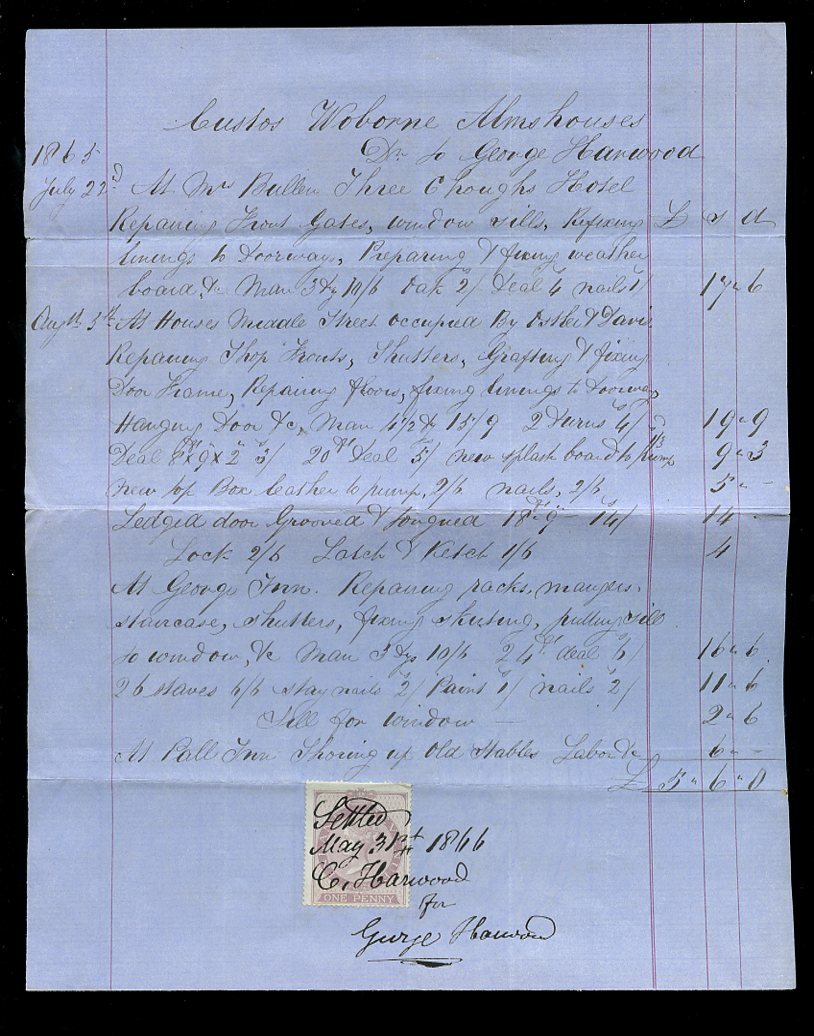 Custos Woborne Almshouses
1865 Dr to George Harwood
July 22d At Mrs Bullen Three Choughs Hotel
Repairing Front Gates, window sills, Refixing £ s d
linings to Doorways, Preparing & fixing weather
board, &c Man 3 Dys 10/6 Oak 2/ Deal 4/ nails 1/ 17 " 6
Augth 5th At Houses Middle Street occupied By & Davis
Repairing Shop Fronts, Shutters, Grafting & fixing
Door Frame, Repairing floors, fixing linings to Doorway
Hanging Door &c, Man 4 1/2 d 15/9 2 4/ 19 " 9
Deal 8ft x 9 x 2" 3/ 20ft Deal 5/ new splash board to Pump 1/3 9 " 3
new top Box leather to pump, 2/6 nails, 2/6 5 " -
Ledged door Grooved & tongued 18ft " 9" 14/ 14 -
Lock 2/6 Latch & Ketch 1/6 4
At George Inn. Repairing racks, mangers,
staircase, shutters, fixing skirting, putting sill
to window, &c Man 3 Dys 10/6 24ft deal 6/ 16 " 6
26 staves 6/6 stay nails 2/ Paint 1/ nails 2/ 11 " 6
Sill for window — 2 " 6
At Pall Inn Shoring up Old Stables Labor &c 6 " -
£ 5 " 6 " 0
Settled
May 31st 1866
C. Harwood
ONE PENNY
for
George Harwood